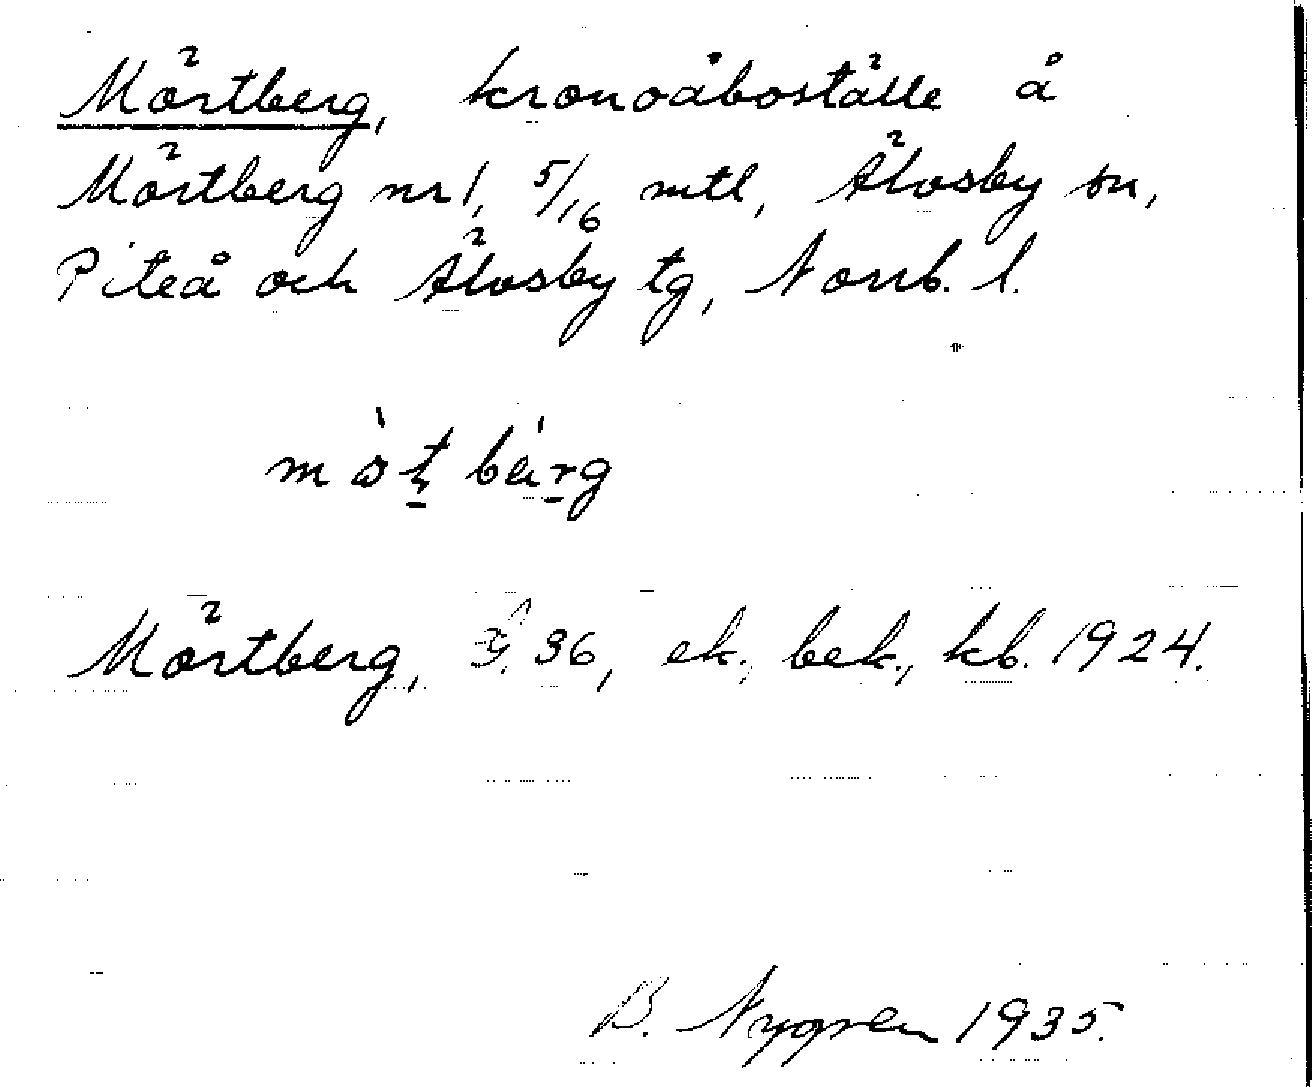 Mörtberg, kronoåboställe å
Mörtberg nr 1, 5/16 mtl, Älvsby sn,
Piteå och Älvsby tg, Norrb. l.
Mörtberg, 36, ek., bek., kb. 1924.
B. Nygren 1935.